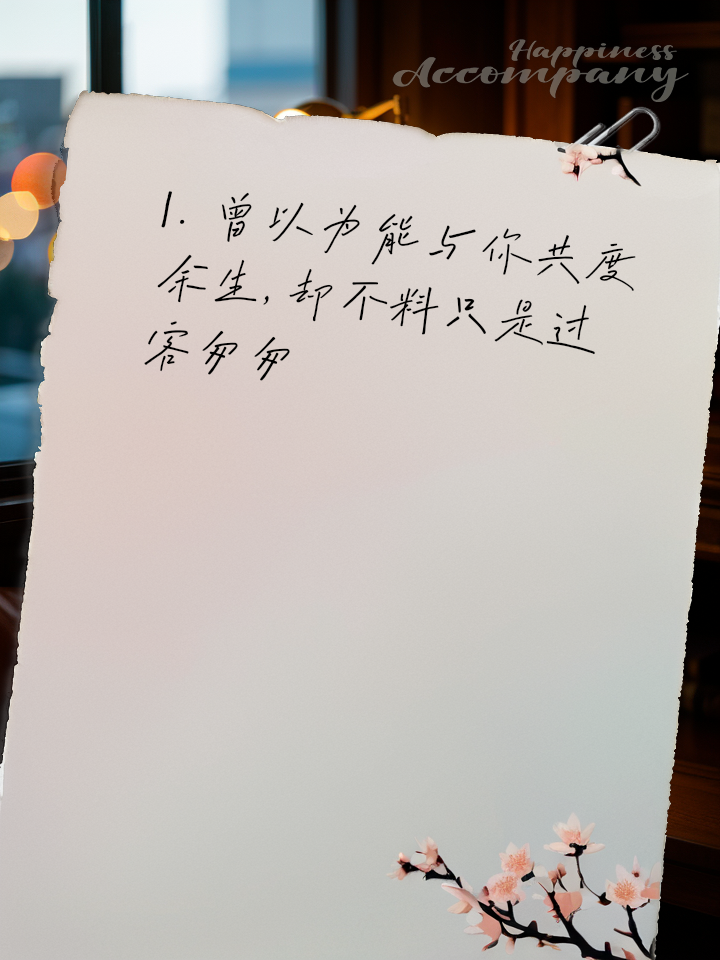 Happiness
Accompany
1. 曾以为能与你共度
余生,却不料只是过
客匆匆